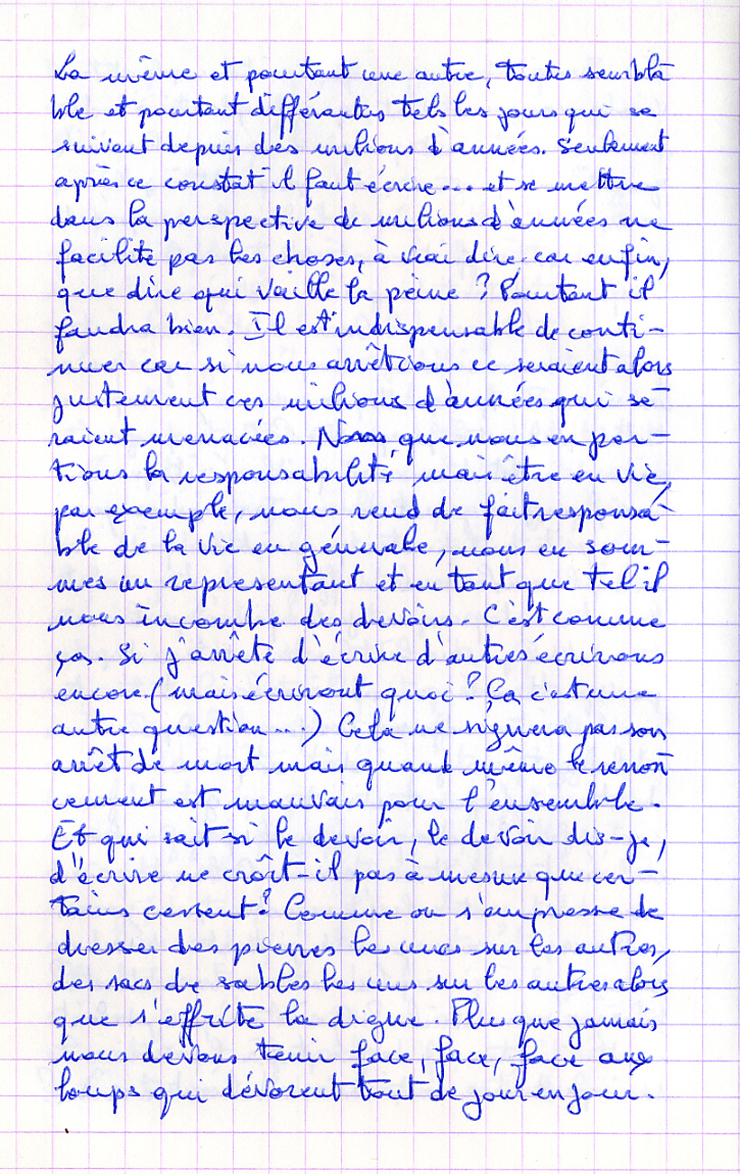 La même et pourtant une autre, toutes sembla
ble et pourtant différentes tels les jours qui se
suivent depuis des milions d'années. Seulement
après ce constat il faut écrire... et se mettre
dans la perspective de milions d'années ne
facilite pas les choses, à vrai dire. car enfin,
que dire qui vaille la peine ? Pourtant il
faudra bien. Il est indispensable de conti-
nuer car si nous arrêtions ce seraient alors
justement ces milions d'années qui se-
raient menacées. Non que nous en por-
tions la responsabilité mais être en vie,
par exemple, nous rend de fait responsa-
ble de la vie en générale, nous en som-
mes un representant et en tant que tel il
nous incombe des devoirs. C'est comme
ças. Si j'arrête d'écrire d'autres écrirons
encore. (mais écriront quoi ? Ça c'est une
autre question...) Cela ne signera pas son
arrêt de mort mais quand même le renon
cement est mauvais pour l'ensemble.
Et qui sait si le devoir, le devoir dis-je,
d'écrire ne croît-il pas à mesure que cer-
tains cessent ? Comme on s'empresse de
dresser des pierres les unes sur les autres,
des sacs de sables les uns sur les autres alors
que s'effrite la digue. Plus que jamais
nous devons tenir face, face, face aux
loups qui dévorent tout de jour en jour.